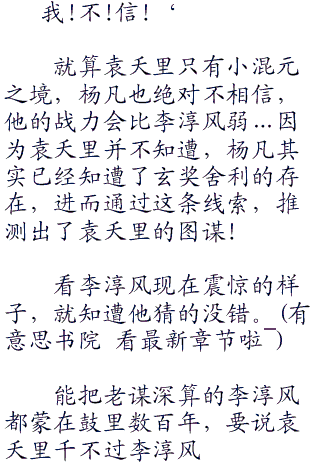 我!不!信! ‘
就算袁天里只有小混元
之境，杨凡也绝对不相信，
他的战力会比李淳风弱…因
为袁天里并不知遭，杨凡其
实已经知遭了玄奖舍利的存
在，进而通过这条线索，推
测出了袁天里的图谋!
看李淳风现在震惊的样
子，就知遭他猜的没错。(有
意思书院 看最新章节啦¯)
能把老谋深算的李淳风
都蒙在鼓里数百年，要说袁
天里干不过李淳风